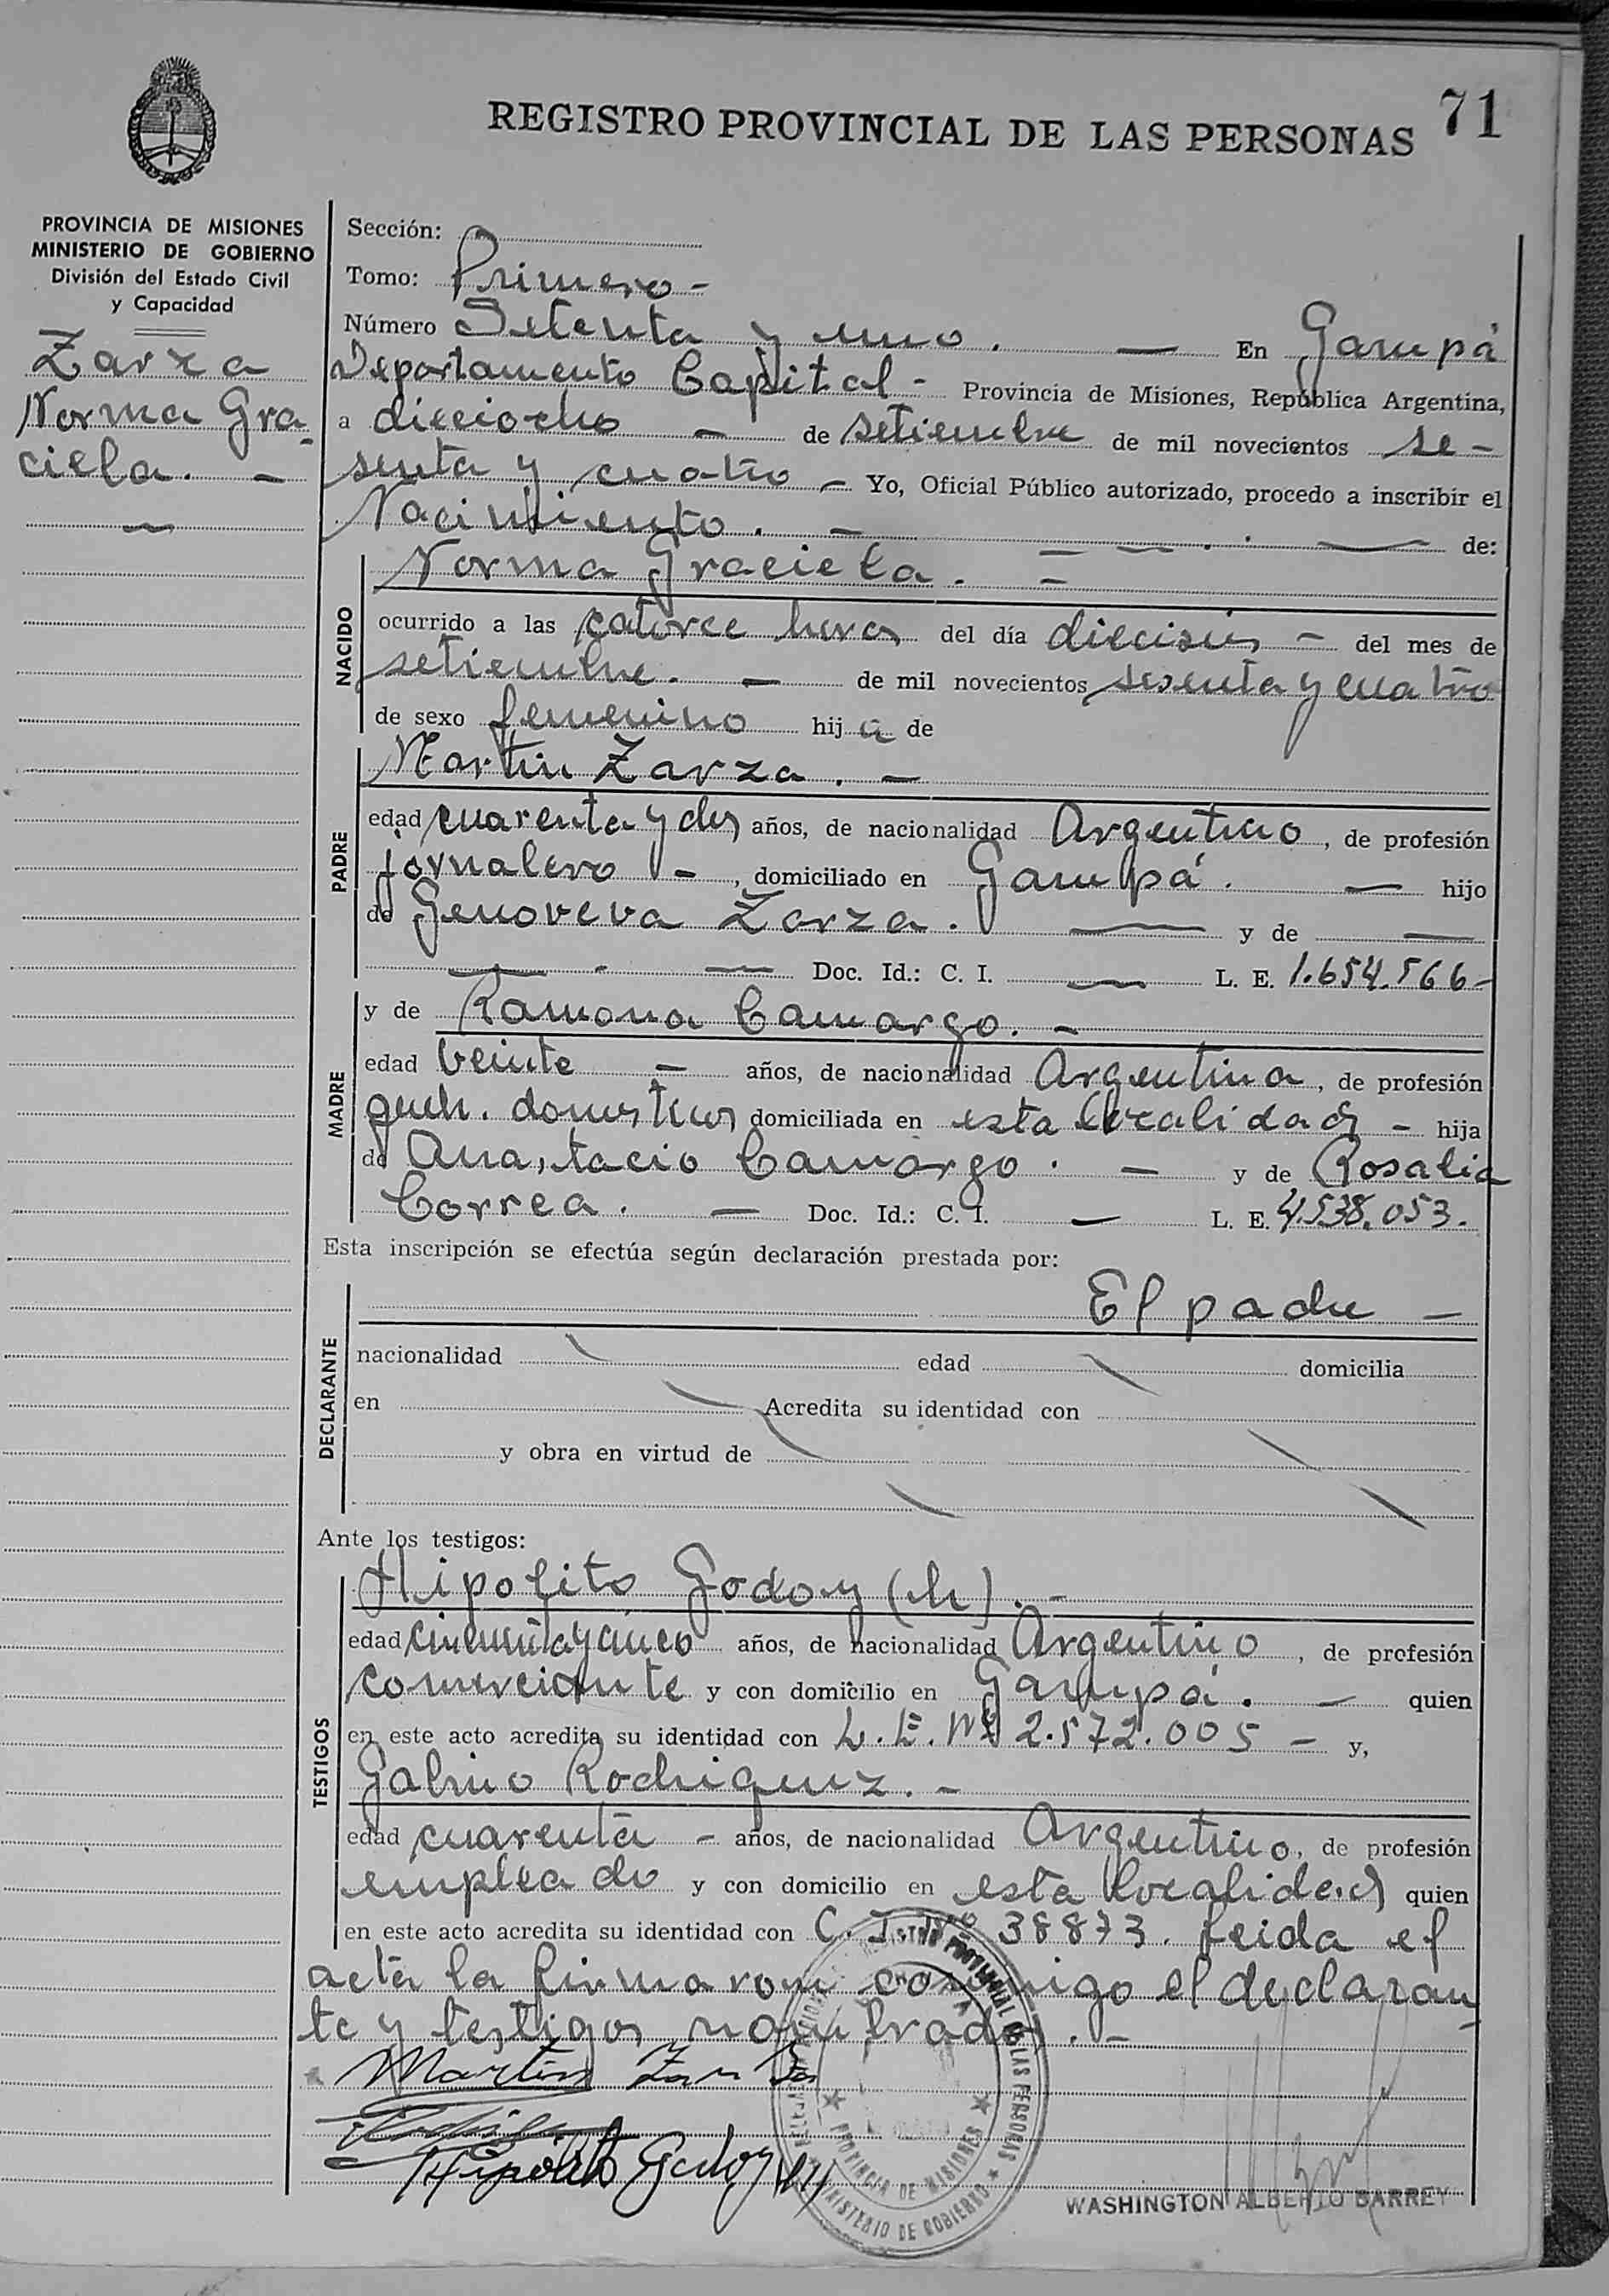 71
REGISTRO PROVINCIAL DE LAS PERSONAS
PROVINCIA DE MISIONES
MINISTERIO DE GOBIERNO
División del Estado Civil
y Capacidad
Zarza
Norma Gra-
ciela. -
Sección:
Tomo: Primero -
Número Setenta y uno. — En Garupá
Departamento Capital - Provincia de Misiones, República Argentina,
a dieciocho - de setiembre de mil novecientos se-
senta y cuatro - Yo, Oficial Público autorizado, procedo a inscribir el
Nacimiento. - de:
NACIDO
Norma Graciela. -
ocurrido a las catorce horas del día dieciseis - del mes de
setiembre. - de mil novecientos sesenta y cuatro
de sexo femenino hija de
PADRE
Martin Zarza. -
edad cuarenta y dos años, de nacionalidad Argentino, de profesión
jornalero -, domiciliado en Garupá. — hijo
de Genoveva Zarza. — y de —
— Doc. Id.: C. I. — L. E. 1.654.566-
MADRE
y de Ramona Camargo. -
edad veinte - años, de nacionalidad Argentina, de profesión
queh. domesticos domiciliada en esta localidad - hija
de Anastacio Camargo. - y de Rosalia
Correa. — Doc. Id.: C. I. — L. E. 4.538.053.
Esta inscripción se efectúa según declaración prestada por:
DECLARANTE
El padre -
nacionalidad edad domicilia
en Acredita su identidad con
y obra en virtud de
Ante los testigos:
TESTIGOS
Hipolito Godoy (h). -
edad cincuenta y cinco años, de nacionalidad Argentino, de profesión
comerciante y con domicilio en Garupá. - quien
en este acto acredita su identidad con L. E. Nº 2.572.005 - y,
Galino Rodriguez. -
edad cuarenta - años, de nacionalidad Argentino, de profesión
empleado y con domicilio en esta localidad quien
en este acto acredita su identidad con C. I. Nº 38873. Leida el
acta la firmaron conmigo el declaran-
te y testigos nombrados. -
Martin Zarza
Hipólito Godoy (h)
PROVINCIA DE MISIONES
MINISTERIO DE GOBIERNO
WASHINGTON ALBERTO BARREY